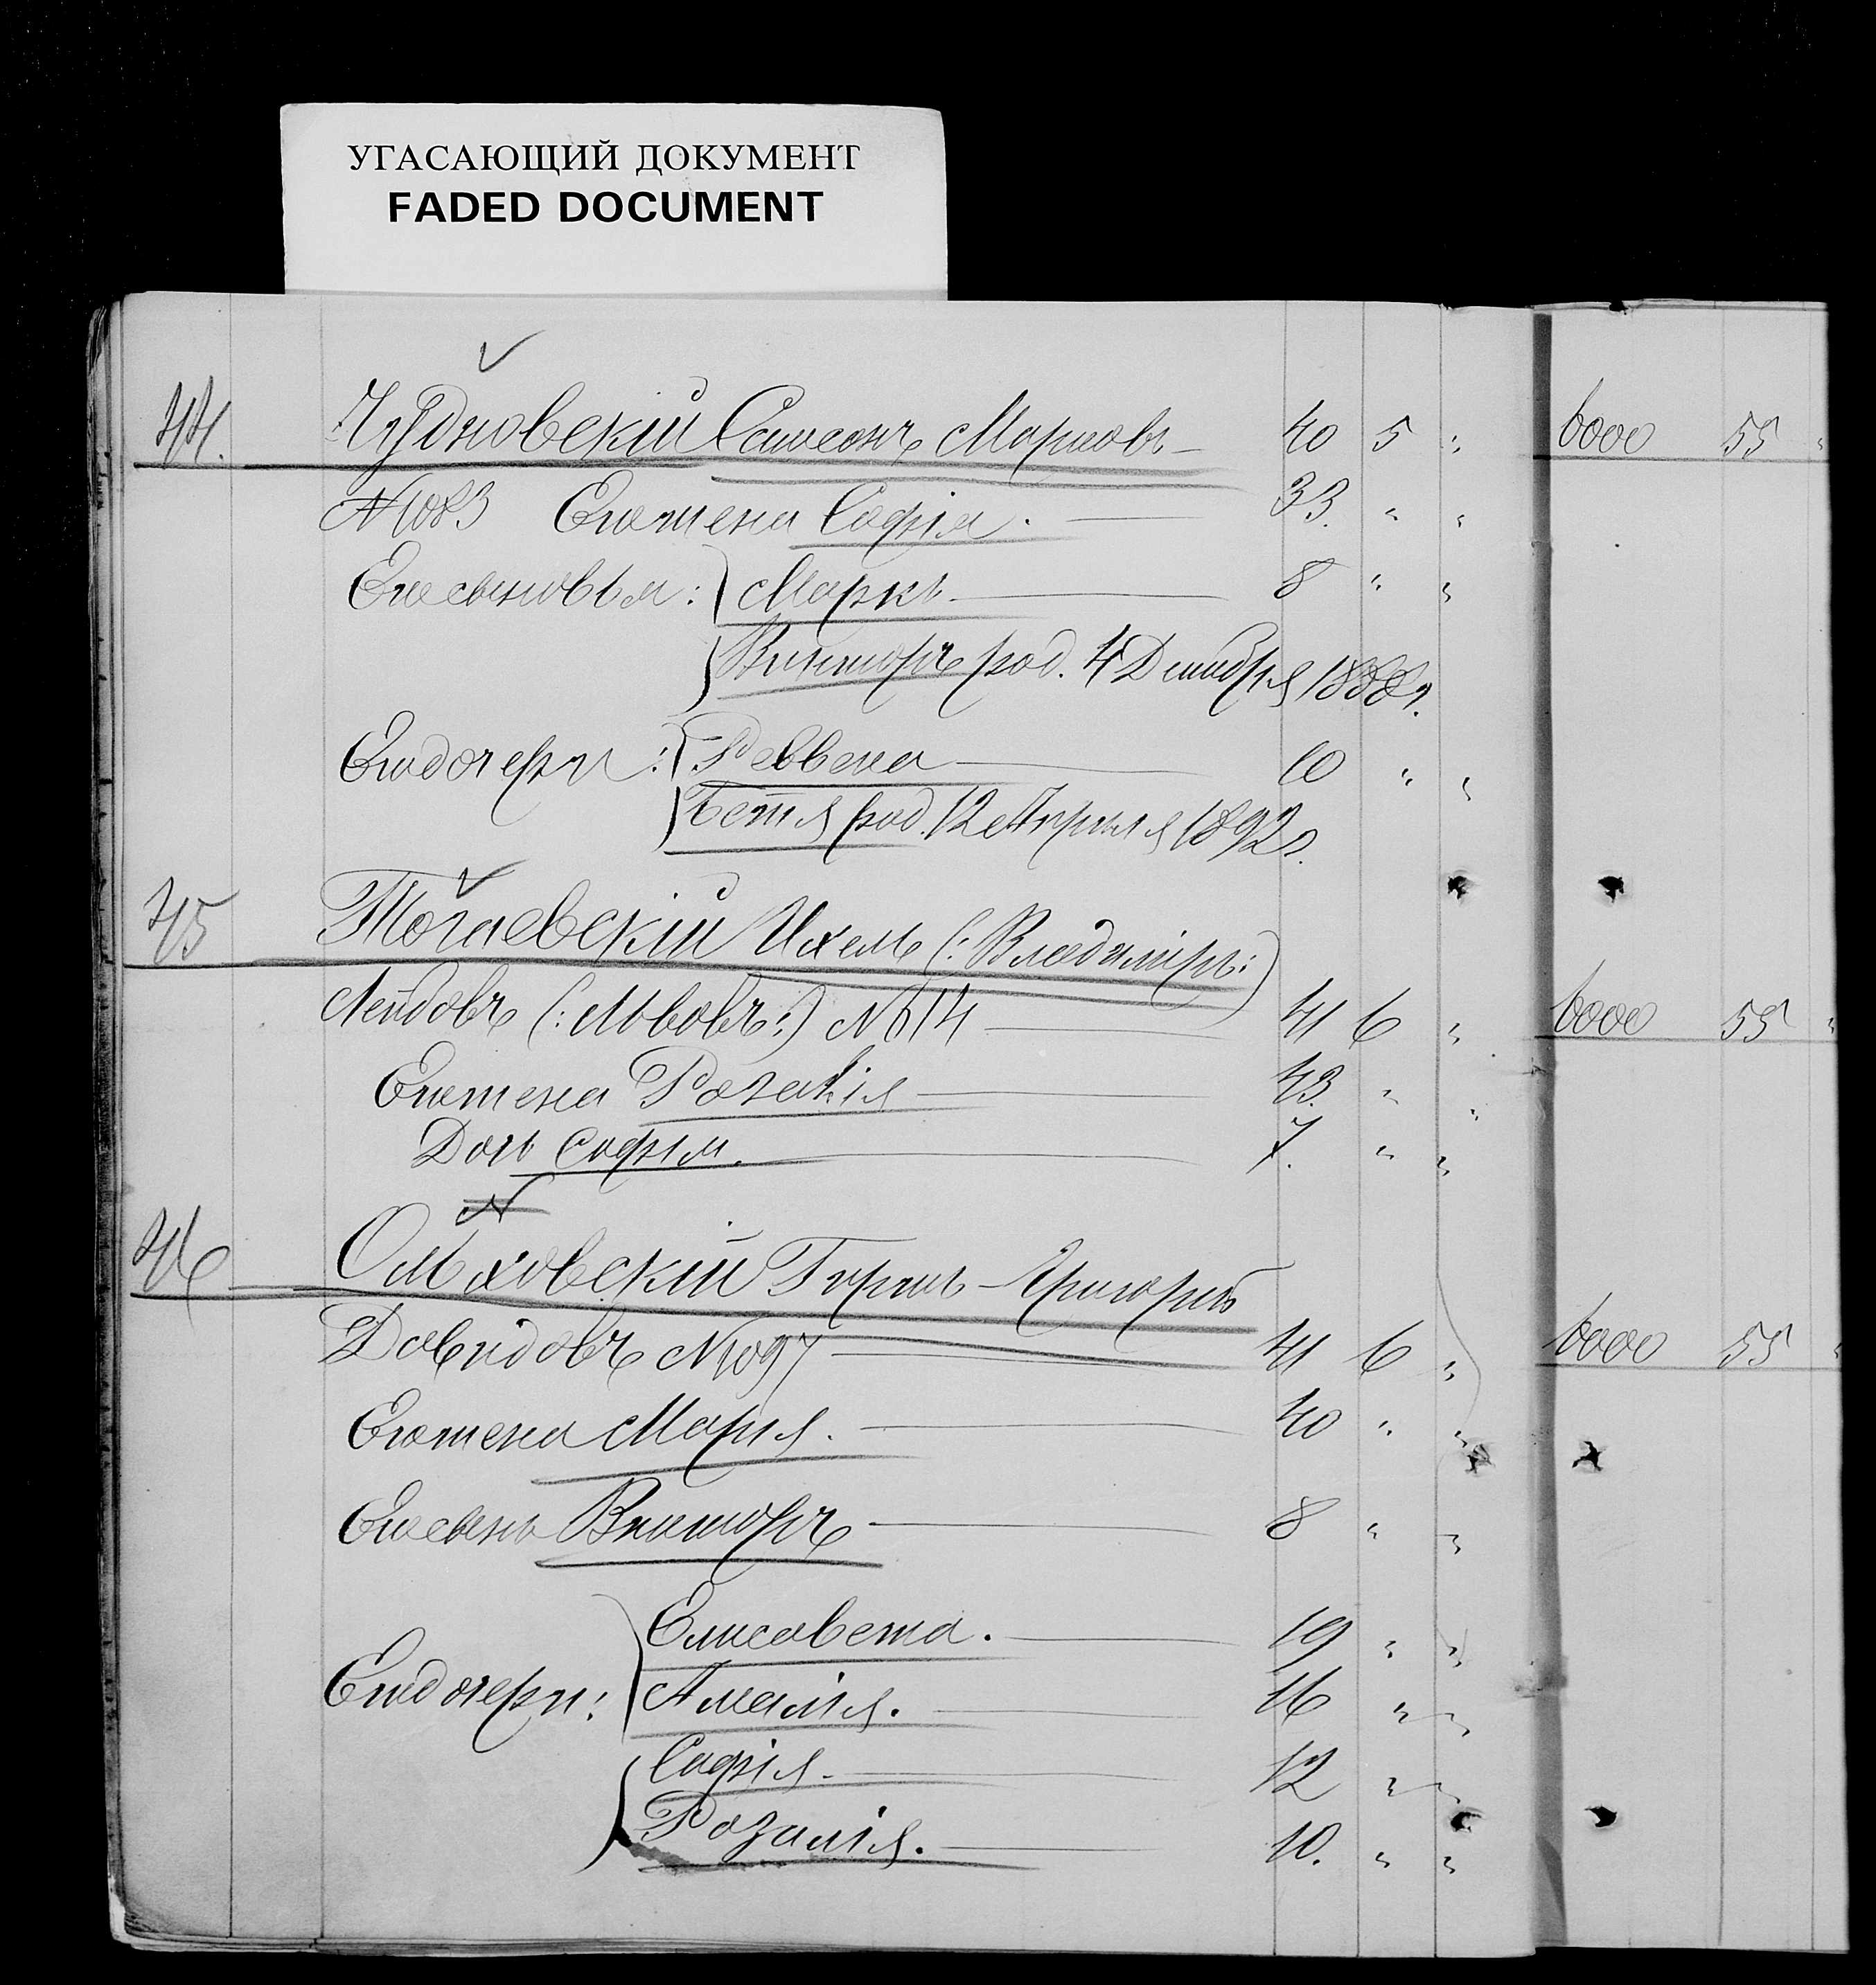 УГАСАЮЩИЙ ДОКУМЕНТ
FADED DOCUMENT
44. Чудновскій Самсонъ Марковъ 40 5 " 6000 55 "
№1083 Его жена Софія. 33. " "
Его сыновья: Маркъ 8 " "
Викторъ род. 4 Декабря 1888 г.
Его дочери: Реввека 10 " "
Бетя род. 12 Апрѣля 1892 г.
45 Тогаевскій Ихель (: Владиміръ:)
Лейбовъ (: Львовъ:) №14 41 6 " 6000 55 "
Его жена Розалія 43. " "
Дочь Софія. 7. " "
46 Ольховскій Гиршъ-Григорій
Давидовъ №1097 41 6 " 6000 55 "
Его жена Марія. 40 " "
Его сынъ Викторъ 8 " "
Елисавета. 19 " "
Его дочери: Амалія. 16 " "
Софія. 12 " "
Розалія. 10. " "